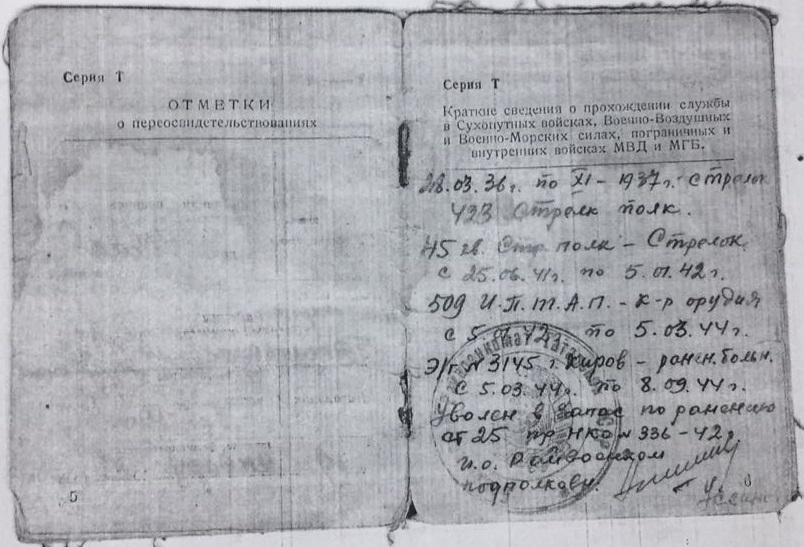 Серия Т
ОТМЕТКИ
о переосвидетельствованиях
5
Серия Т
Краткие сведения о прохождении службы
в Сухопутных войсках, Военно-Воздушных
и Военно-Морских силах, пограничных и
внутренних войсках МВД и МГБ.
28.03.36г. по XI - 1937г. стрелок
423 Стрелк полк.
45 гв. Стр. полк - Стрелок.
с 25.06.41г. по 5.01.42г.
509 И.П.Т.А.П. - к-р орудия
с 5. 42 по 5.03.44г.
Э/г. N 3145 г. Киров - ранен. больн.
с 5.03.44г. по 8.09.44г.
Уволен в запас по ранению
ст 25 пр НКО N 336-42г.
и.о. Райвоенком
подполковн.
6